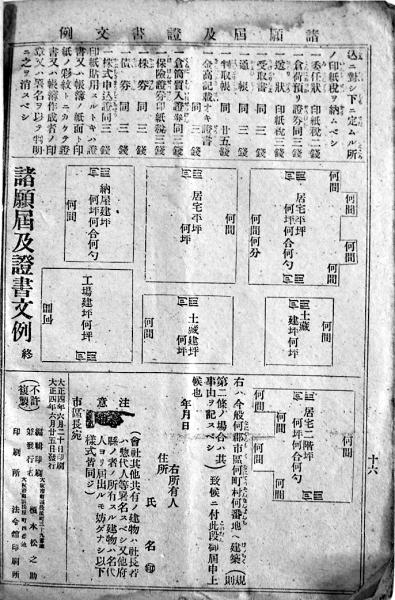 諸願屆及證書文例
十六
込ニ對シ下ニ定ムル所
ノ印紙税ヲ納ムベシ
一委任狀 印紙税二錢
一倉荷預リ證券同三錢
一送リ狀 印紙税 錢
一受取書 同 三 錢
一通帳 同 三 錢
一判取帳 同 廿五 錢
一金高記載ナキ證書
同 三 錢
一倉荷質入證券同三錢
一保險證券印紙税三錢
一株券 同 三 錢
一債券 同 三 錢
一株式申込證同三錢
印紙貼用スルトキハ證
書又ハ帳簿ノ紙面ト印
紙ノ彩紋トニカケテ證
書又ハ帳簿作成者ノ印
章又ハ署名ヲ以テ判明
ニ之ヲ消スベシ
何間
何間
何間
何間
居宅平坪
何坪何合何勺
何間何分
居宅平坪
何坪
何間
納屋建坪
何坪何合何勺
何間
土藏
建坪何坪
何間
土藏建坪
何坪
何間
工場建坪何坪
居宅二階坪
何坪何合何勺
何間
何間
右ハ今般何郡市區何町村何番地ヘ建築(規則
第二條ノ場合ハ其
事由ヲ記スベシ)致候ニ付此段御屆申上
候也
年月日
住所
右所有人
氏名㊞
市區長宛
注意
(會社其他共有ノ建物ハ社長若
ハ惣代人等署名スベシ又他府
縣ノ者ノ所有スル建物ハ名代
人ヨリ屆出ルモ妨ゲナシ以下
樣式皆同ジ)
諸願屆及證書文例 終
大正四年六月二十日印刷
大正四年六月廿五日發行
不許複製
編輯印刷
兼發行者
榎本松之助
印刷所
法令館印刷所